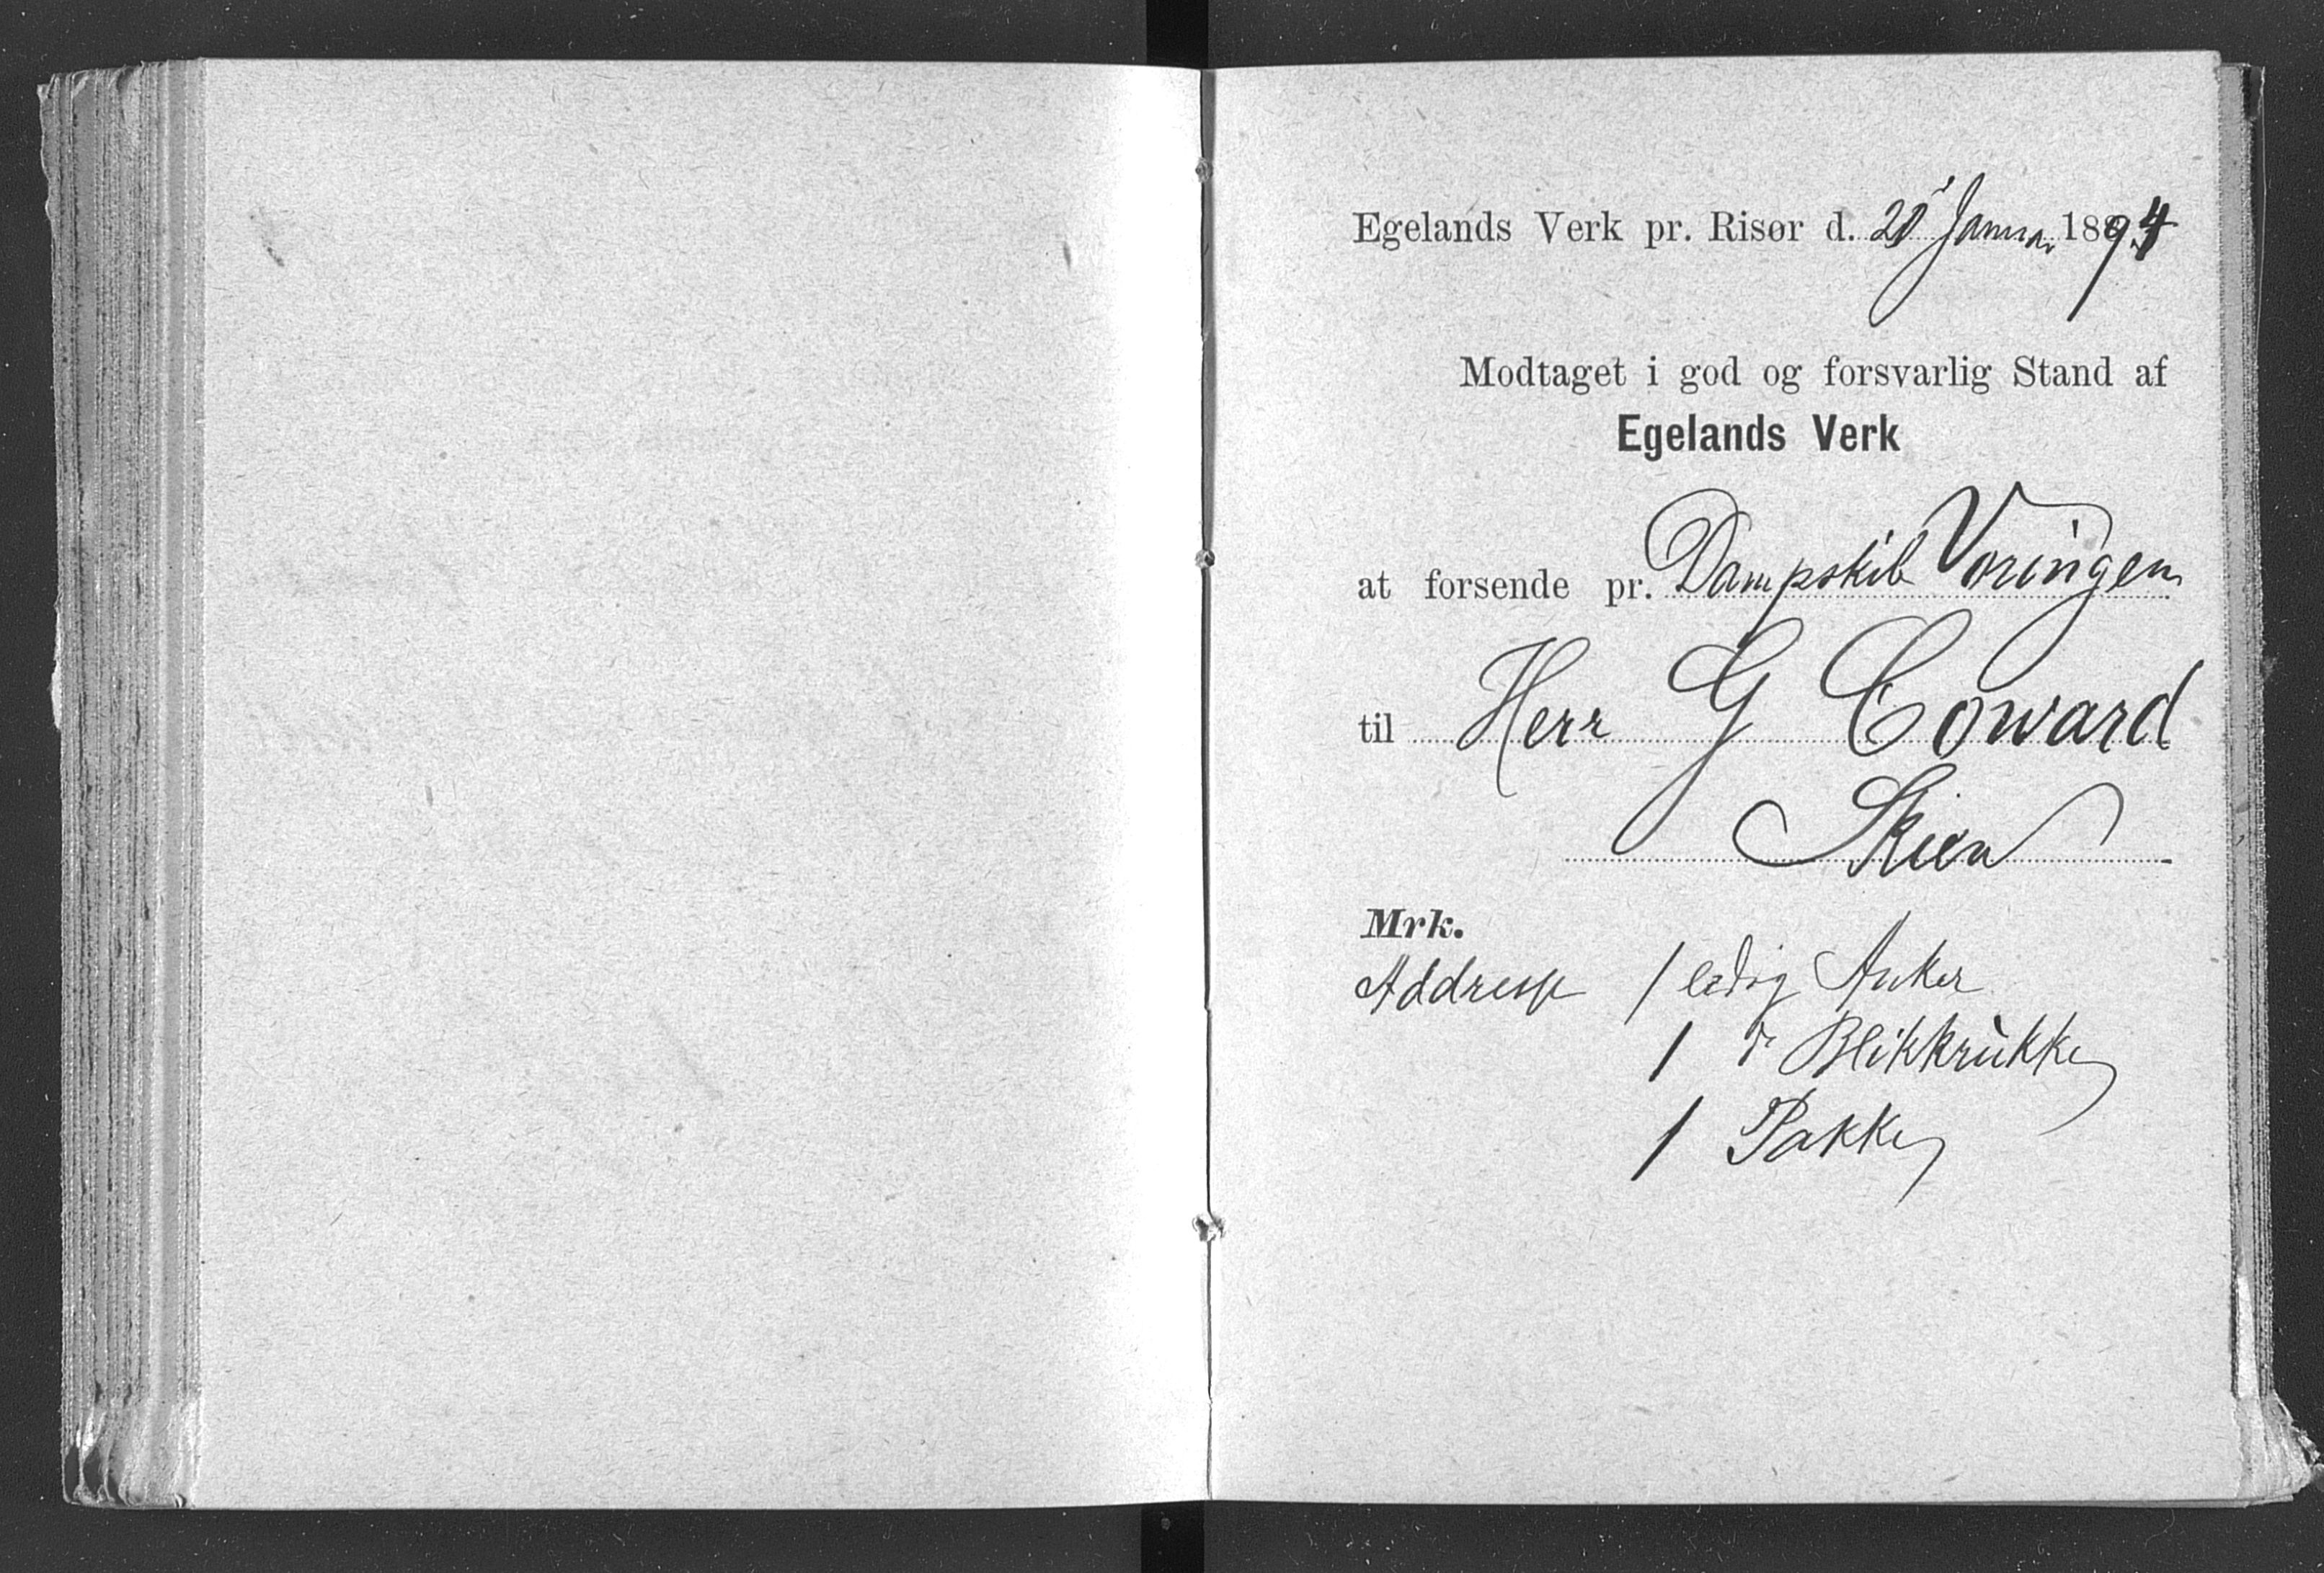 Egelands Verk pr. Risør d. 20 Januar 1894
Modtaget i god og forsvarlig Stand af
Egelands Verk
at forsende pr. Dampskib Voringen
til Herr G Coward
Skien
Mrk.
Addresse 1 ledig Anker
1 do Blikkrukke
1 Pakke